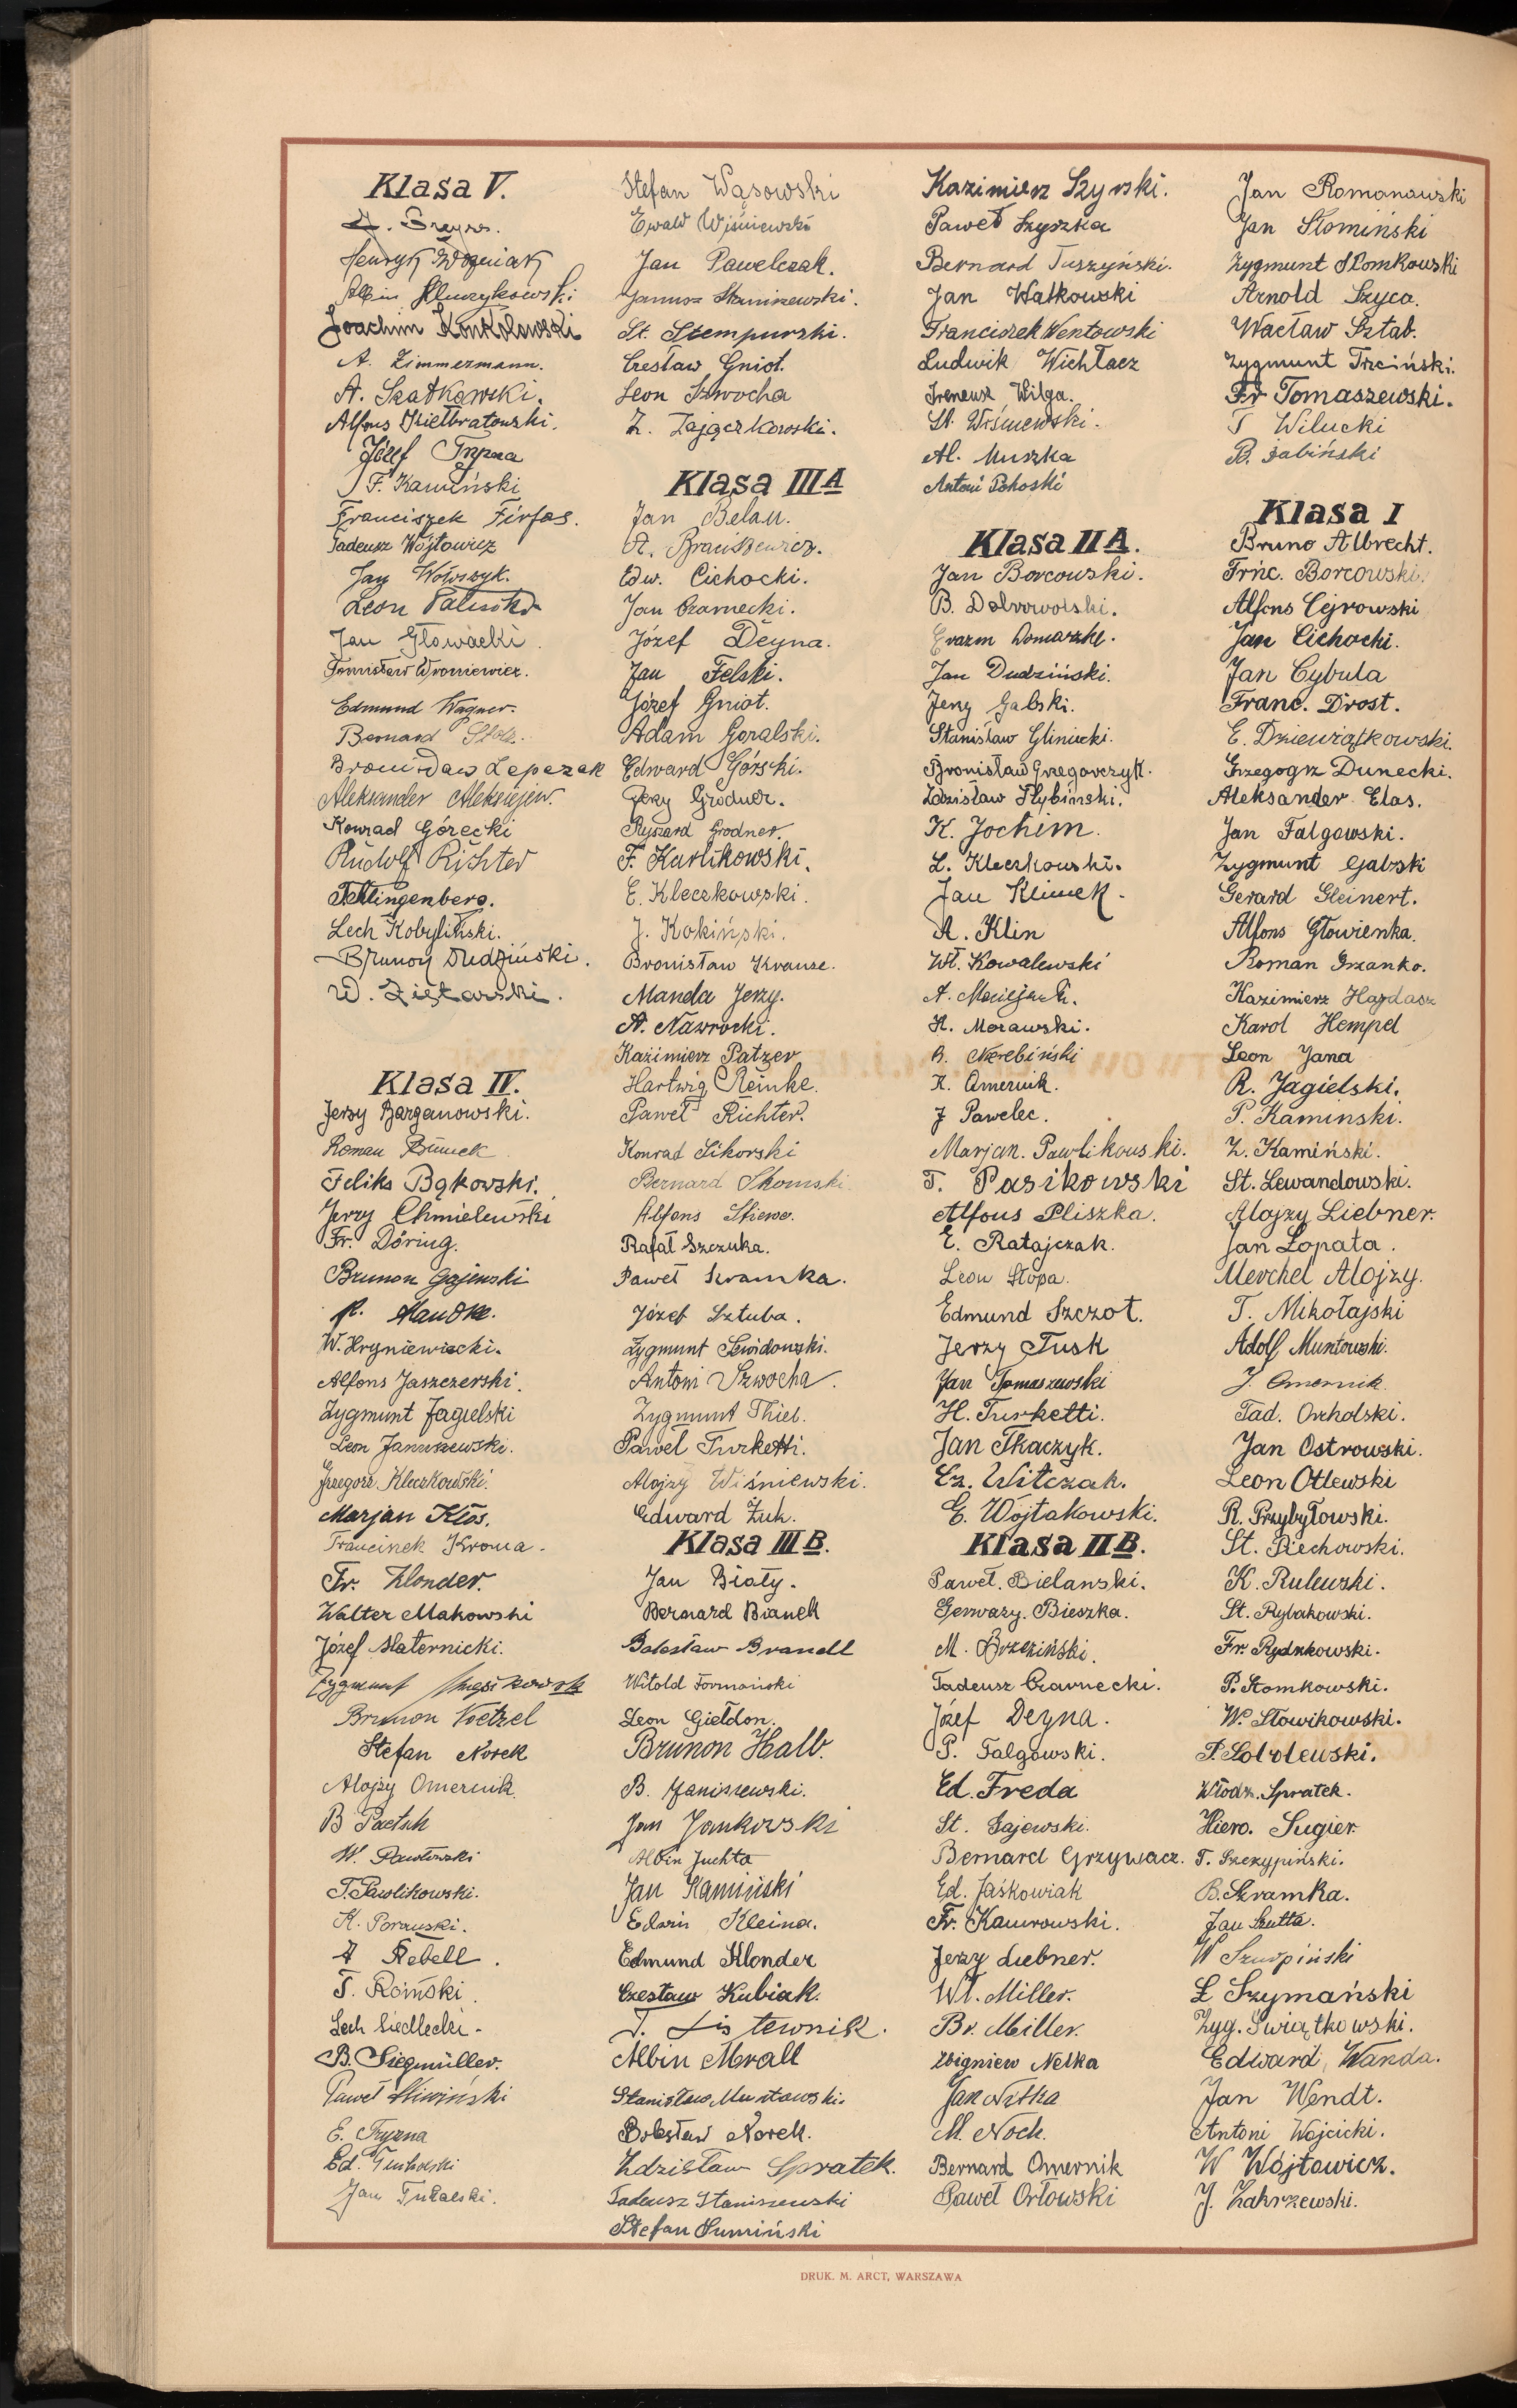 Klasa V.
Henryk Woźniak
Albin
Joachim Konkolewski
A. Zimmermann.
A. Szatkowski.
Alfons Kiełbratowski.
Józef
F. Kamiński
Franciszek Firfas.
Tadeusz Wójtowicz
Jan Wołoszyk.
Leon
Jan Głowacki
Wroniewicz.
Edmund Wagner.
Bernard
Bronisław Lepczak
Aleksander Aleksiejew.
Konrad Górecki
Rudolf Richter
Schlingenberg.
Lech Kobyliński.
Brunon Rudziński.
W. Ziętarski.
Klasa IV.
Jerzy Barganowski.
Roman
Feliks Bąkowski.
Jerzy Chmielewski
Fr. Döring.
Brunon Gajewski
Handke.
W. Hryniewiecki.
Alfons Jaszczerski.
Zygmunt Jagielski
Leon Januszewski.
Grzegorz Kleczkowski.
Marjan Kłos.
Franciszek Krona.
Fr. Klonder.
Walter Makowski
Józef Maternicki.
Zygmunt
Brunon Noetzel
Stefan Norek
Alojzy Omernik.
B Paetsch
W. Pawłowski
T. Pawlikowski.
K. Porzuski.
A Rebell.
T. Roiński.
Lech Siedlecki.
B. Siegmüller.
Paweł Śliwiński
E. Tryzna
Ed. Tucholski
Jan Tuchalski.
Stefan Wąsowski
Ewald Wiśniewski
Jan Pawelczak.
Janusz Staniszewski.
St. Stempurski.
Czesław Gniot.
Leon Szwocha
Z. Zajączkowski.
Klasa III A
Jan Belau.
Edw. Cichocki.
Jan Czarnecki.
Józef Deyna.
Jan Felski.
Józef Gniot.
Adam Goralski.
Edward Górski.
Jerzy Grodner.
Ryszard Grodner.
F. Karlikowski.
E. Kleczkowski.
J. Kokiński.
Bronisław Krause.
Manda Jerzy.
A. Nawrocki.
Kazimierz Patzer
Hartwig Reinke.
Paweł Richter.
Konrad Sikorski
Bernard Skomski
Alfons
Rafał Szczuka.
Paweł Szramka.
Józef Sztuba.
Zygmunt
Antoni Szwocha.
Zygmunt Thiel.
Paweł Turketti.
Alojzy Wiśniewski.
Edward Żuk.
Klasa III B.
Jan Biały.
Bernard Bianek
Bolesław Brandl
Witold Formański
Leon Giełdon.
Brunon Halb.
B. Janiszewski.
Jan Jankowski
Albin Juchta
Jan Kamiński
Edwin Kleina.
Edmund Klonder
Czesław Kubiak.
T. Listewnik.
Albin Mrall
Stanisław Muntowski.
Bolesław Norek.
Zdzisław Spratek.
Tadeusz Staniszewski
Stefan Sumiński
Kazimierz Szyrski.
Paweł Szyszka
Bernard Tuszyński.
Jan Watkowski
Franciszek Wentowski
Ludwik Wichłacz
Ireneusz Wilga.
St. Wiśniewski.
Al. Muszka
Antoni
Klasa II A.
Jan Borcowski.
B. Dobrowolski.
Erazm Domaszke.
Jan Dudziński.
Jerzy Galski.
Stanisław Gliniecki.
Bronisław Grzegorczyk.
Zdzisław Hybiński.
K. Jochim.
L. Kleczkowski.
Jan Klimek.
A. Klin
Wł. Kowalewski
A. Maciejak.
K. Morawski.
B. Nierebiński
K. Omernik.
J Pawelec.
Marjan. Pawlikowski.
T. Pasikowski
Alfons Pliszka.
E. Ratajczak.
Leon Stopa.
Edmund Szczot.
Jerzy Tusk
Jan Tomaszewski
H. Turketti.
Jan Tkaczyk.
Cz. Witczak.
E. Wojtakowski.
Klasa II B.
Paweł. Bielanski.
Gerwazy. Bieszka.
M. Brzeziński.
Tadeusz Czarnecki.
Józef Deyna.
P. Falgowski.
Ed. Freda
St. Gajewski.
Bernard Grzywacz.
Ed. Jaśkowiak
Fr. Kamrowski.
Jerzy Liebner.
Wł. Miller.
Br. Miller.
Zbigniew Nelka
Jan Nitka
M. Noch.
Bernard Omernik
Paweł Orłowski
Jan Romanowski
Jan Słomiński
Zygmunt Słomkowski
Arnold Szyca.
Wacław Sztab.
Zygmunt Trzciński.
Fr Tomaszewski.
T Wilucki
B. Żabiński
Klasa I
Bruno Albrecht.
Frnc. Borcowski.
Alfons Cejrowski
Jan Cichocki.
Jan Cybula
Franc. Drost.
E. Dziewiątkowski.
Grzegogrz Dunecki.
Aleksander Elas.
Jan Falgowski.
Zygmunt Galski
Gerard Gleinert.
Alfons Głowienka.
Roman Grzanko.
Kazimierz Hardasz
Karol Hempel
Leon Jana
R. Jagielski.
P. Kaminski.
Z. Kamiński.
St. Lewandowski.
Alojzy Liebner.
Jan Łopata.
Merchel Alojzy.
T. Mikołajski
Adolf Muntowski.
J. Omernik.
Tad. Orcholski.
Jan Ostrowski.
Leon Otlewski
R. Przybyłowski.
St. Piechowski.
K. Rulewski.
St. Rybakowski.
Fr. Rydzkowski.
P. Słomkowski.
W. Słowikowski.
P. Sobolewski.
Włodz. Spratek.
Hiero. Sugier.
T. Szczypiński.
B. Szramka.
Jan Szutta.
W Szurpiński
L Szymański
Zyg. Świątkowski.
Edward Wanda.
Jan Wendt.
Antoni Wojcicki.
W Wójtowicz.
J. Zakrzewski.
DRUK. M. ARCT, WARSZAWA